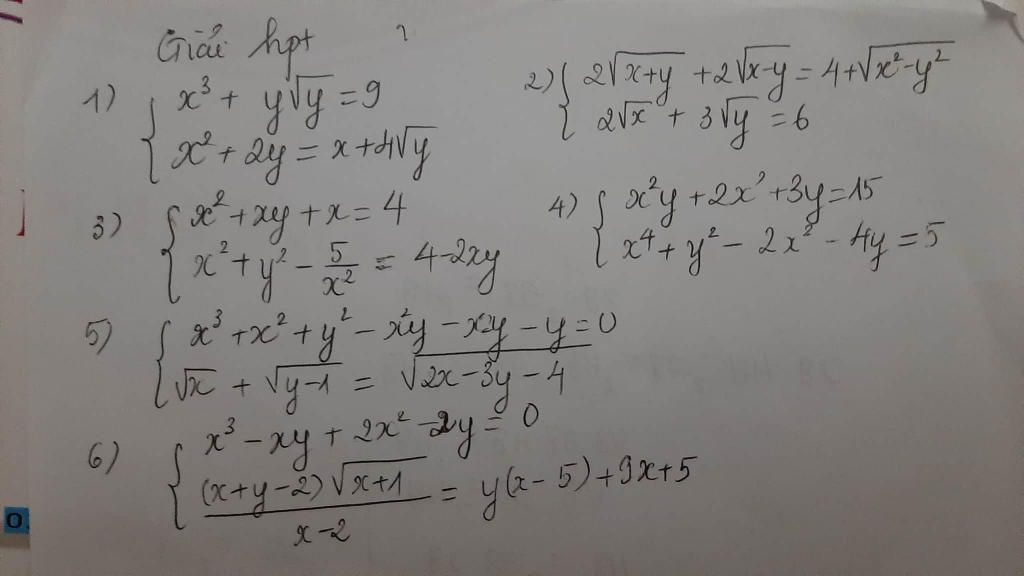 Giải hpt ?
1) { x³ + y√y = 9
x² + 2y = x + 4√y
2) { 2√(x+y) + 2√(x-y) = 4 + √(x²-y²)
2√x + 3√y = 6
3) { x² + xy + x = 4
x² + y² - 5/x² = 4 - 2xy
4) { x²y + 2x² + 3y = 15
x⁴ + y² - 2x² - 4y = 5
5) { x³ + x² + y² - x²y - xy - y = 0
√x + √(y-1) = √(2x-3y-4)
6) { x³ - xy + 2x² - 2y = 0
(x+y-2)√(x+1) / (x-2) = y(x-5) + 9x + 5
O